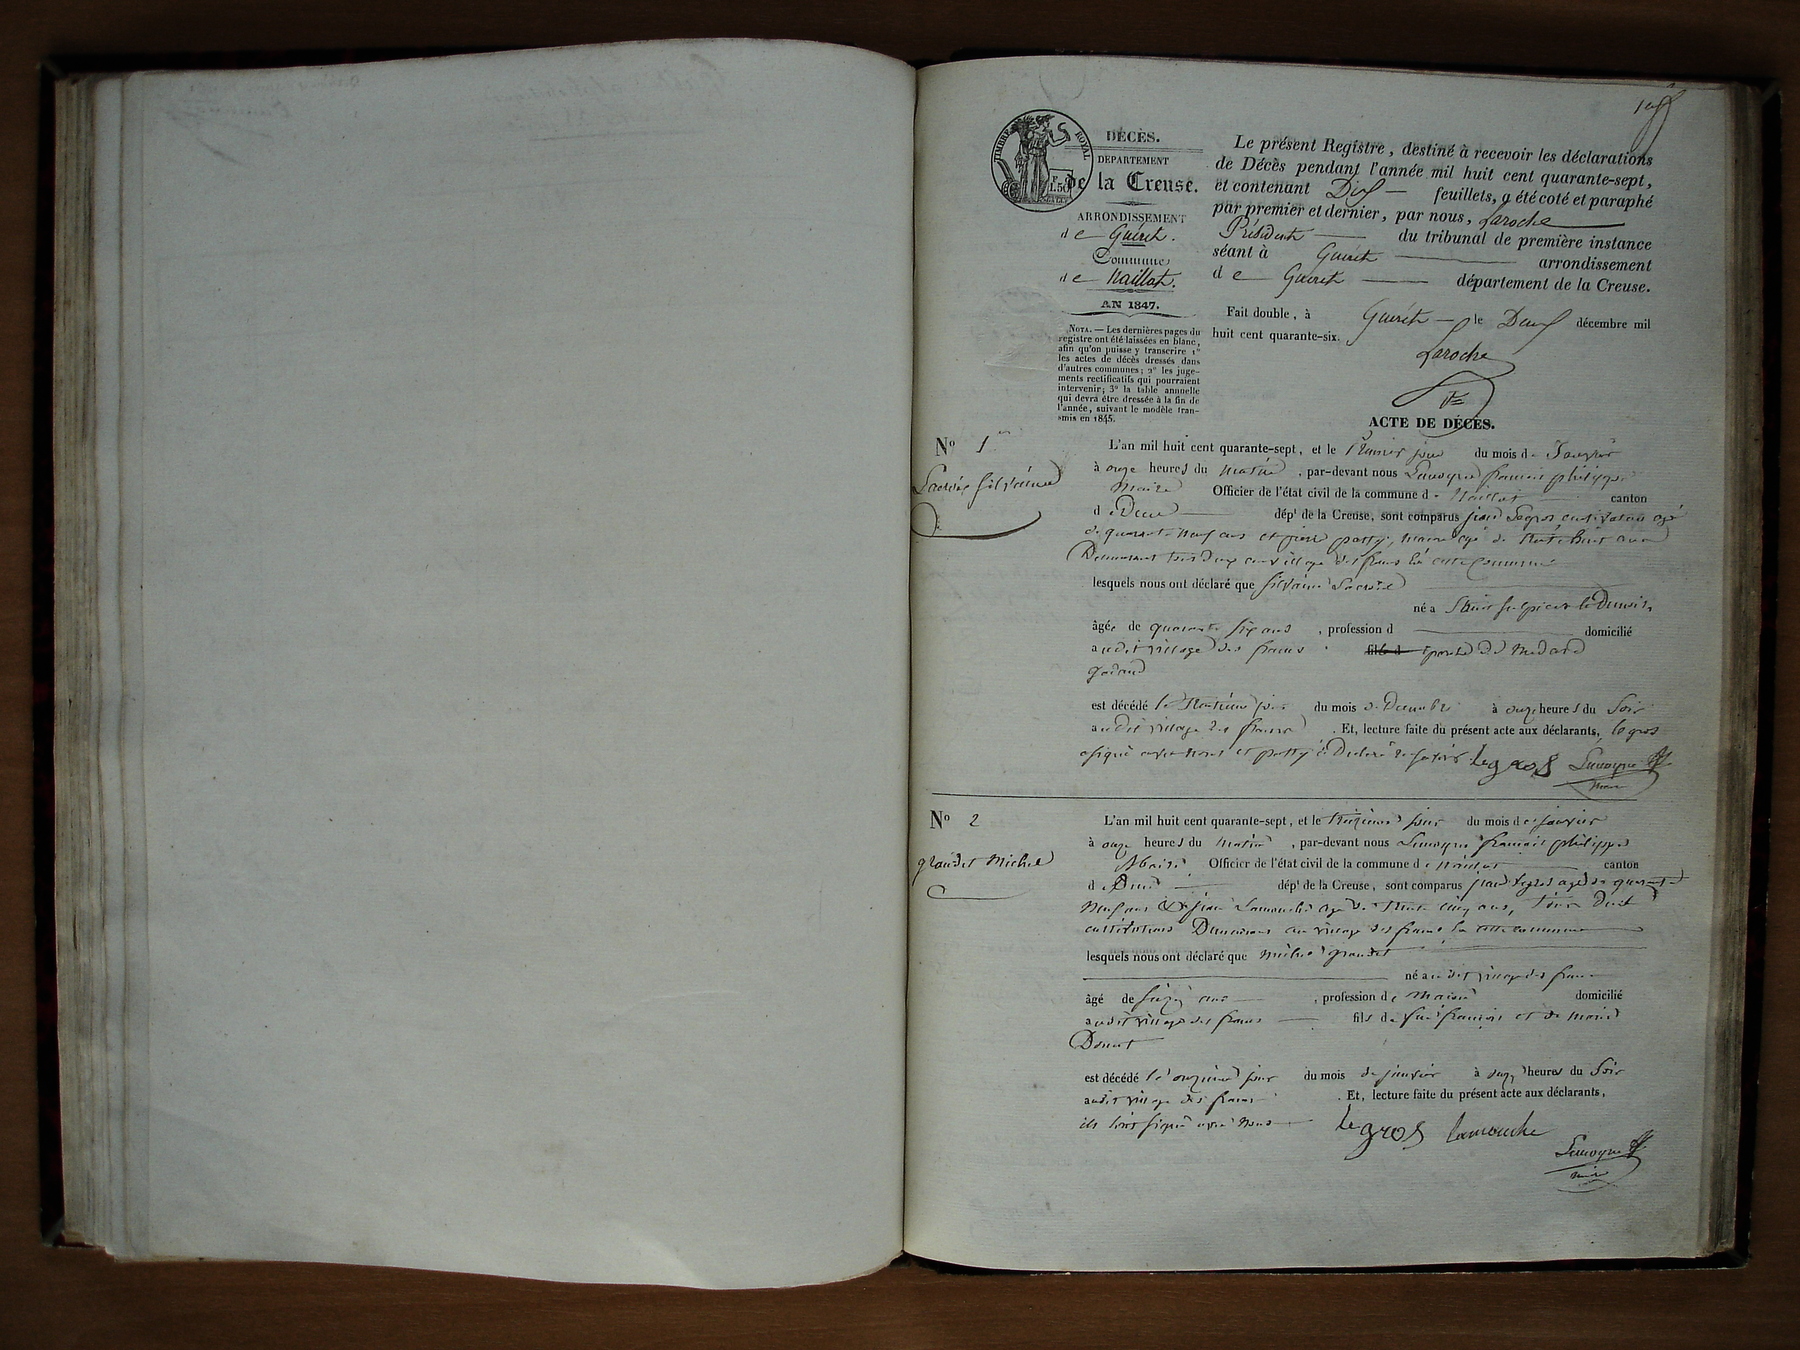 TIMBRE ROYAL
F. 1.50
DÉCÈS.
DÉPARTEMENT
de la Creuse.
ARRONDISSEMENT
de Guéret.
Commune
de Naillat.
AN 1847.
NOTA. — Les dernières pages du
registre ont été laissées en blanc,
afin qu'on puisse y transcrire 1°
les actes de décès dressés dans
d'autres communes; 2° les juge-
ments rectificatifs qui pourraient
intervenir; 3° la table annuelle
qui devra être dressée à la fin de
l'année, suivant le modèle tran-
smis en 1845.
Le présent Registre, destiné à recevoir les déclarations
de Décès pendant l'année mil huit cent quarante-sept,
et contenant Dix feuillets, a été coté et paraphé
par premier et dernier, par nous, Laroche
Président du tribunal de première instance
séant à Guéret arrondissement
de Guéret département de la Creuse.
Fait double, à Guéret le Deux décembre mil
huit cent quarante-six.
Laroche
ACTE DE DÉCÈS.
N° 1er
L'an mil huit cent quarante-sept, et le Premier jour du mois de Janvier
à onze heures du matin, par-devant nous Lemoyne françois philippe
Maire Officier de l'état civil de la commune de Naillat canton
de Dun dépt de la Creuse, sont comparus jean Legros cultivateur agé
de quarante neuf ans et petty, maçon agé de trente huit ans
Demeurant tous deux au village des frans cette commune
lesquels nous ont déclaré que Silvaine
né a Saint Sulpice le Dunois,
âgée de quarante six ans, profession d domicilié
audit village des frans fils d épouse de Médard
est décédé le trentième jour du mois de Décembre à onze heures du Soir
audit village des frans. Et, lecture faite du présent acte aux déclarants, legros
a signé avec nous et petty a Déclaré ne savoir legros Lemoyne
maire
N° 2
grandet Michel
L'an mil huit cent quarante-sept, et le treizième jour du mois de janvier
à onze heures du matin, par-devant nous Lemoyne françois philippe
Maire Officier de l'état civil de la commune de Naillat canton
de Dun dépt de la Creuse, sont comparus jean Legros agé de quarante
neuf ans et jean Lamouche agé de trente cinq ans, tous deux
cultivateurs Demeurans au village des frans cette commune
lesquels nous ont déclaré que michel grandet
né audit village des frans
âgé de seize ans, profession de maçon domicilié
audit village des frans fils de feu françois et de marie
est décédé le onzième jour du mois de janvier à onze heures du Soir
audit village des frans. Et, lecture faite du présent acte aux déclarants,
ils l'ont signé avec nous legros lamouche
Lemoyne
maire